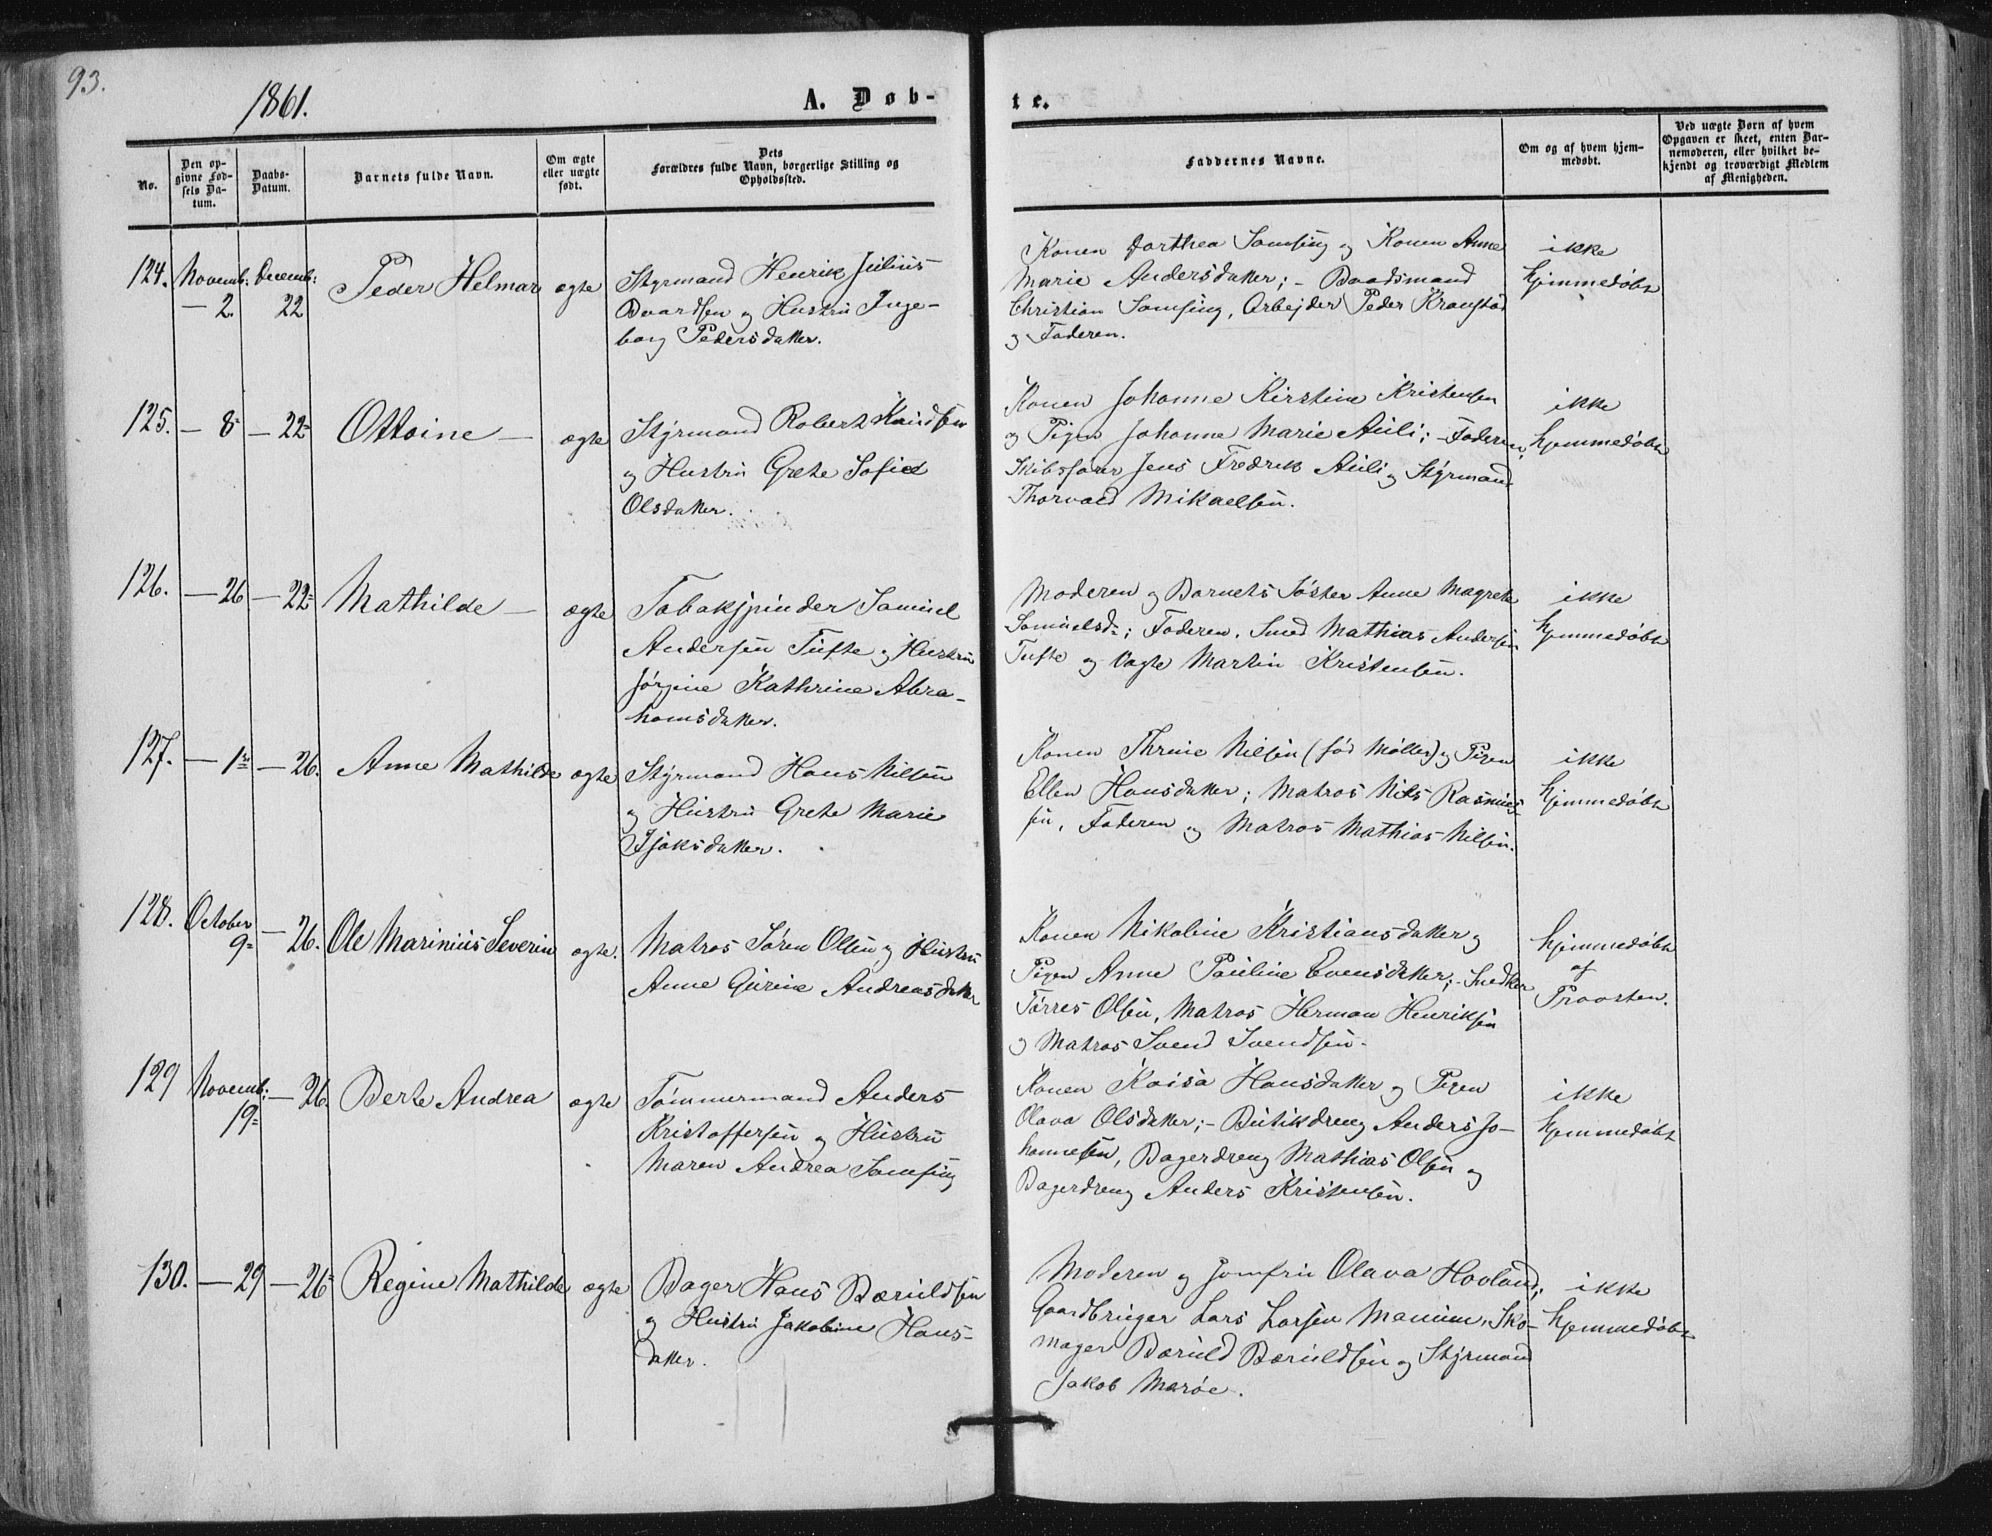 93.
1861.
A. Døb-
te.
No.
Den op-
givne Fød-
sels Da-
tum.
Daabs-
Datum.
Barnets fulde Navn.
Om ægte
eller uægte
født.
Dets
Forældres fulde Navn, borgerlige Stilling og
Opholdssted.
Faddernes Navne.
Om og af hvem hjem-
medøbt.
Ved uægte Børn af hvem
Opgaven er skeet, enten Bar-
nemoderen, eller hvilket be-
kjendt og troværdigt Medlem
af Menigheden.
124. Novemb: Decemb: Peder Helmar ægte
— 2. 22
Styrmand Henrik Julius
Baardsen og Hustru Inge-
borg Pedersdatter.
Konen Dorthea Samsing og Konen Anne
Marie Andersdatter; - Baadsmand
Christian Samsing, Arbejder Peder
og Faderen.
ikke
hjemmedøbt
125. — 8 — 22 Ottoine — ægte
Styrmand Robert Knudsen
og Hustru Grete Sofie
Olsdatter.
Konen Johanne Kirstine Kristensen
og Pigen Johanne Marie Auli; - Faderen,
Skibsfører Jens Fredrik Auli og Styrmand
Thorvald Mikaelsen.
ikke
hjemmedøbt
126. — 26 — 22 Mathilde — ægte
Tobakspinder Samuel
Andersen Tufte og Hustru
Jørgine Kathrine Abra-
hamsdatter.
Moderen og Barnets Søster Anne Magrete
Samuelsd:; Faderen, Smed Mathias Andersen
Tufte og Vagte Martin Kristensen.
ikke
hjemmedøbt
127. — 1 — 26. Anne Mathilde ægte
Styrmand Hans Nilsen
og Hustru Grete Marie
Isaksdatter.
Konen Thrine Nilsen (fød Møller) og Pigen
Ellen Hansdatter; Matros Nils Rasmus-
sen, Faderen og Matros Mathias Nilsen.
ikke
hjemmedøbt
128. October — 26. Ole Marinius Severin ægte.
9
Matros Søren Olsen og Hustru
Anne Gurine Andreasdatter
Konen Nikoline Kristiansdatter og
Pigen Anne Pauline Evensdatter; - Snedker
Tørres Olsen, Matros Herman Henriksen
og Matros Svend Svendsen.
hjemmedøbt
af
Provsten.
129 Novemb: — 26. Berte Andrea ægte
19
Tømmermand Anders
Kristoffersen og Hustru
Maren Andrea Samsing
Konen Kaisa Hansdatter og Pigen
Olava Olsdatter; - Butikdreng Anders Jo-
hannesen, Bagerdreng Mathias Olsen og
Bagerdreng Anders Kristensen.
ikke
hjemmedøbt
130. — 29 — 26 Regine Mathilde ægte
Bager Hans Bæruldsen
og Hustru Jakobine Hans-
datter.
Moderen og Jomfru Olava Hovland;
Gaardbruger Lars Larsen Manum, Sko-
mager Bæruld Bæruldsen og Styrmand
Jakob Marøe.
ikke
hjemmedøbt